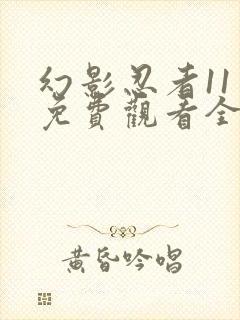 幻影忍者11
免費觀看全
黃昏吟唱